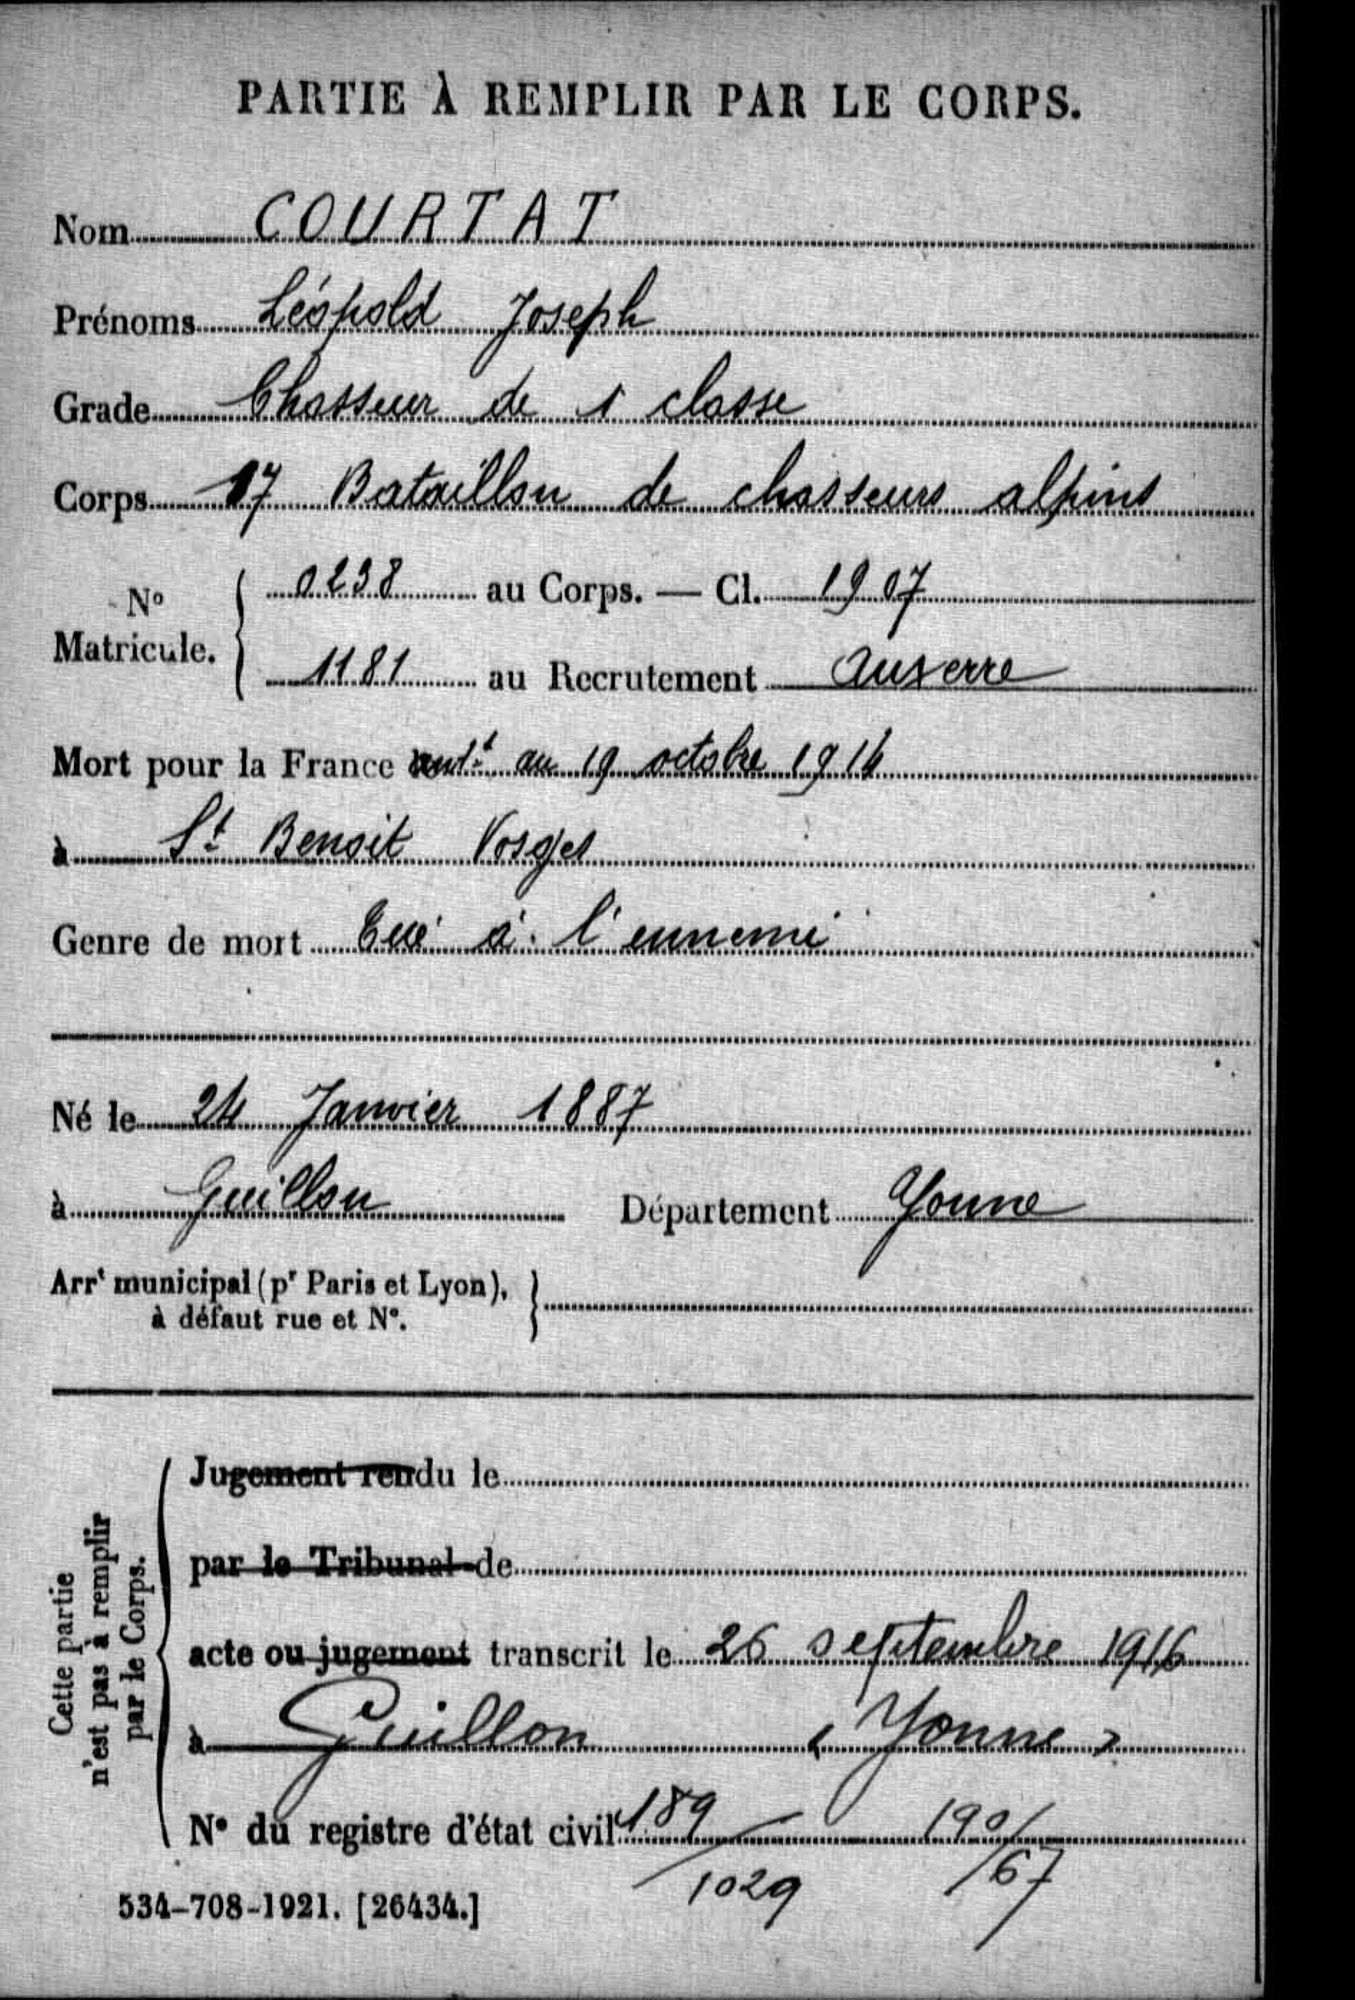 PARTIE À REMPLIR PAR LE CORPS.
Nom COURTAT
Prénoms Léopold Joseph
Grade Chasseur de 1 classe
Corps 17 Bataillon de chasseurs alpins
N° Matricule. 0238 au Corps. — Cl. 1907
1181 au Recrutement Auxerre
Mort pour la France antt au 19 octobre 1914
à St Benoit Vosges
Genre de mort Tué à l'ennemi
Né le 24 Janvier 1887
à Guillon Département Yonne
Arrt municipal (pr Paris et Lyon),
à défaut rue et N°.
Cette partie
n'est pas à remplir
par le Corps.
Jugement rendu le
par le Tribunal de
acte ou jugement transcrit le 26 septembre 1916
à Guillon (Yonne)
N° du registre d'état civil 189/1029 190/67
534-708-1921. [26434.]